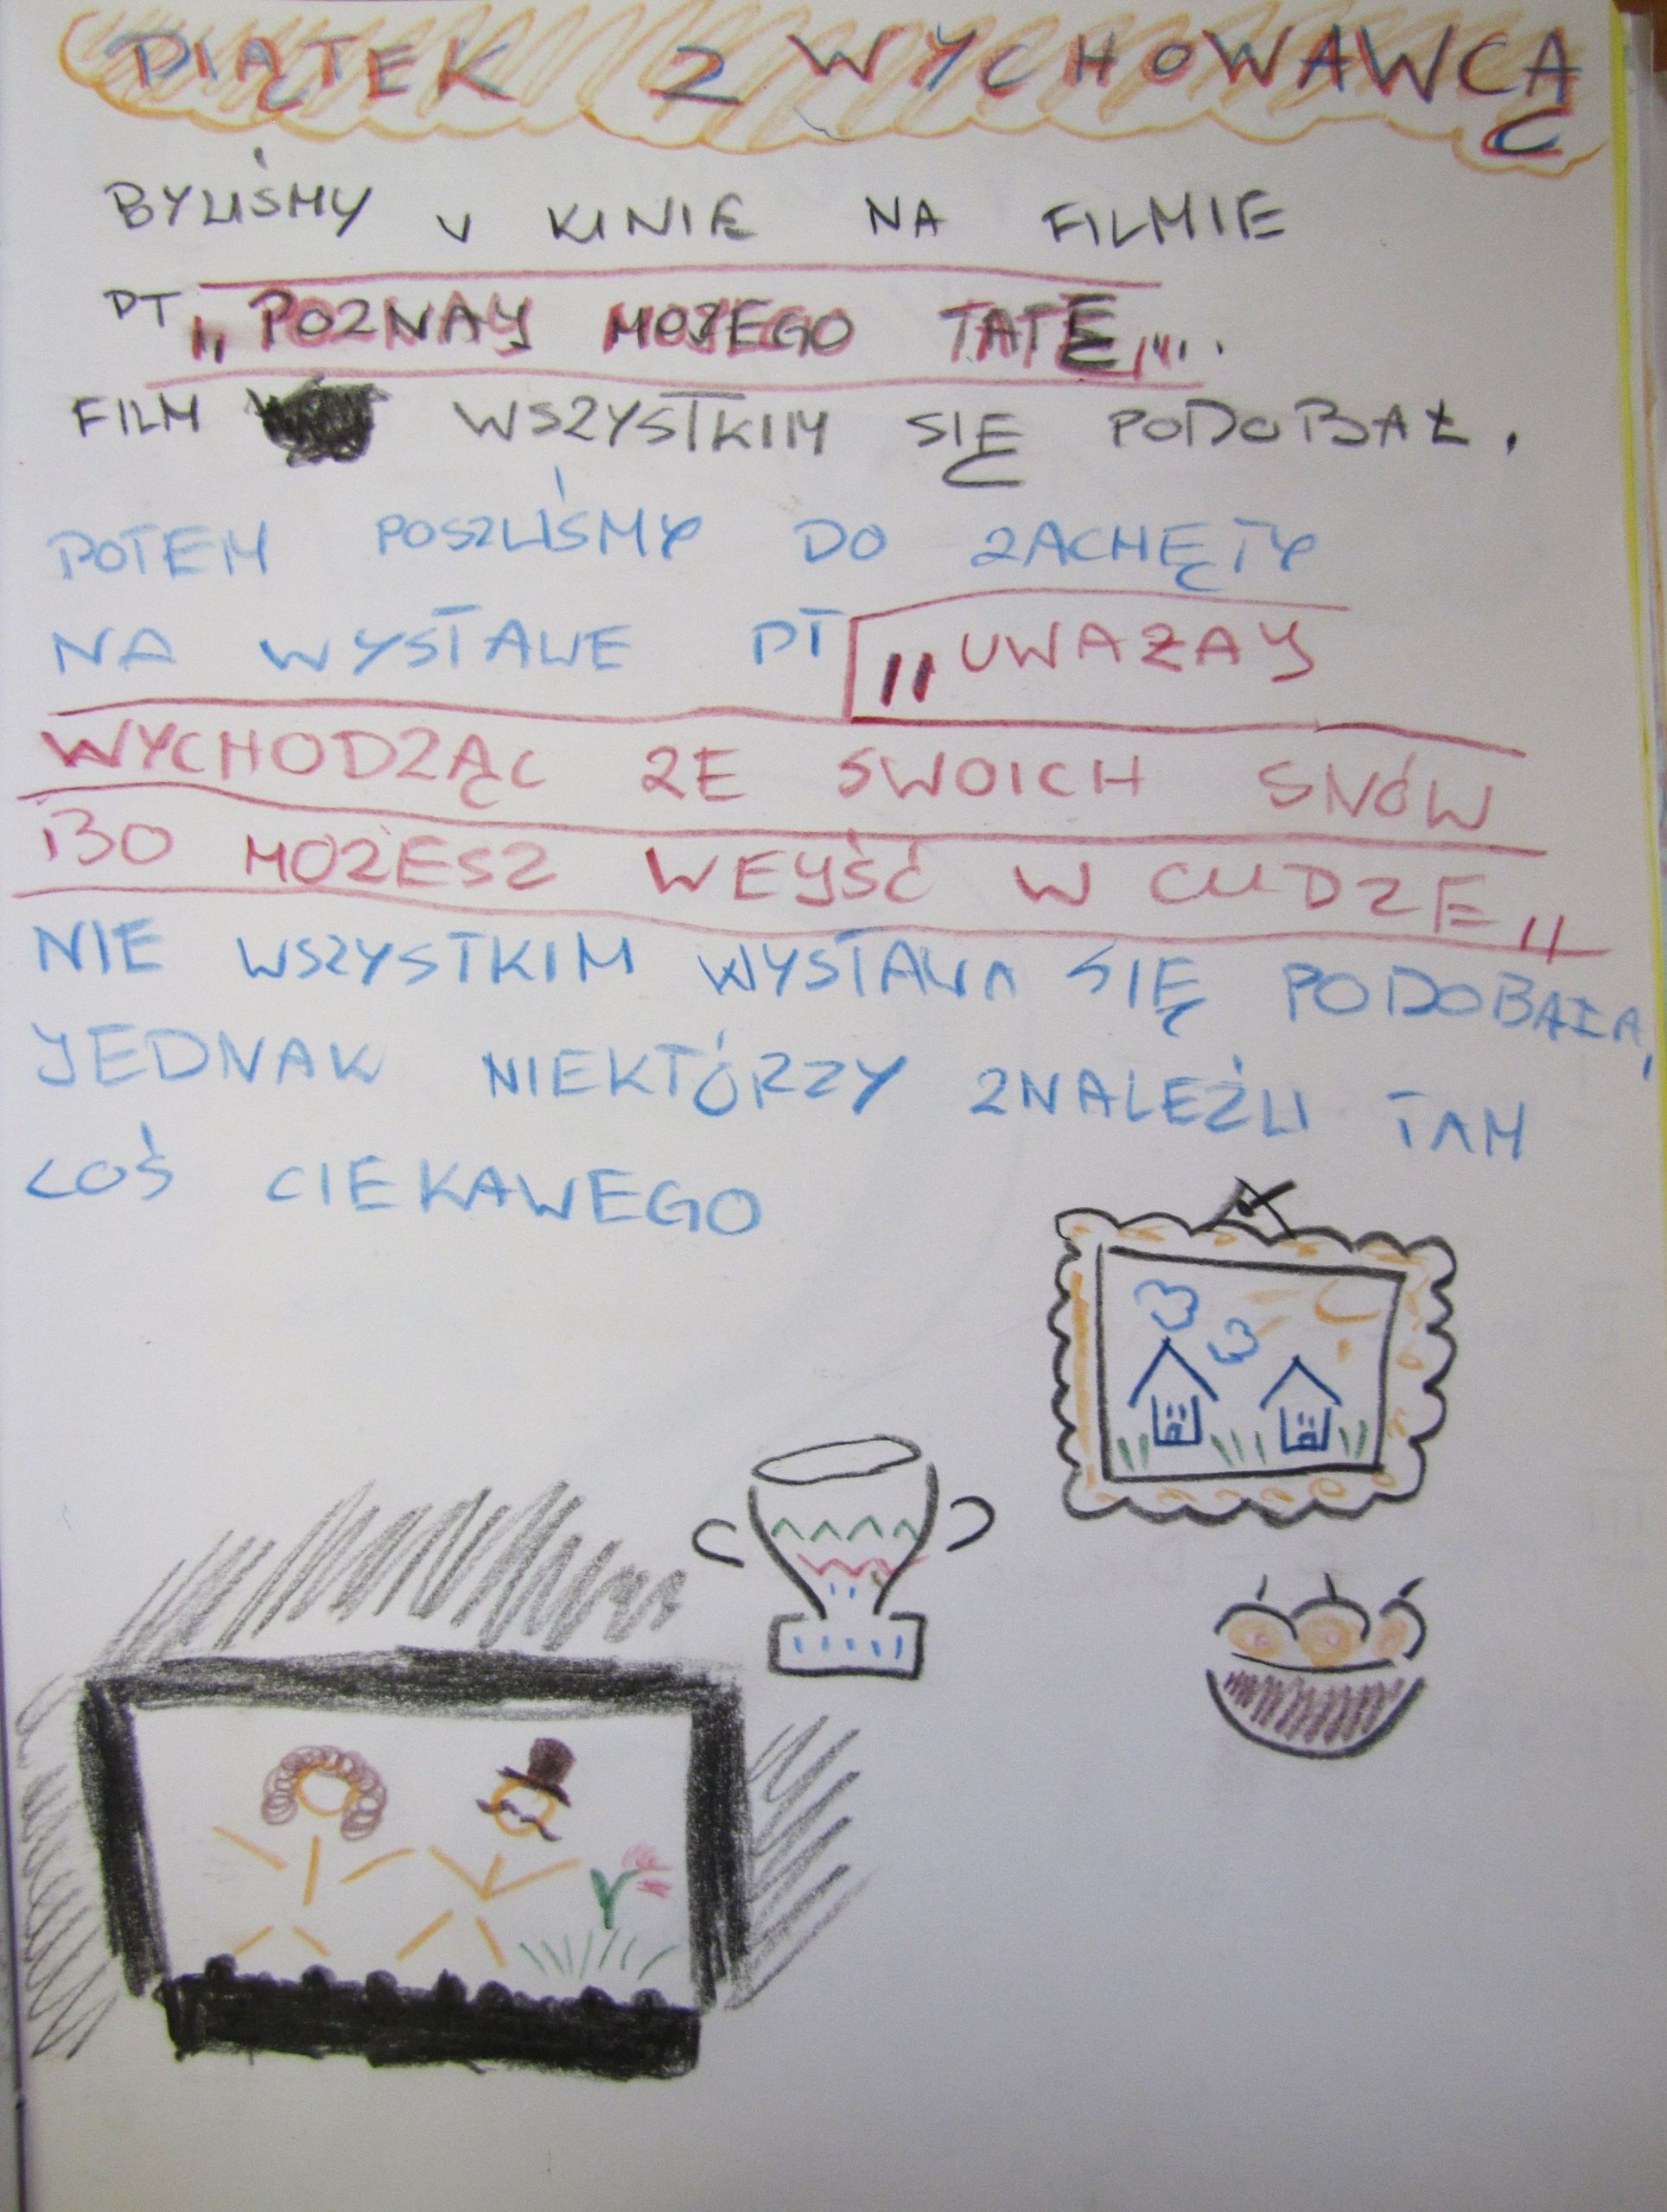 PIĄTEK Z WYCHOWAWCĄ
BYLIŚMY W KINIE NA FILMIE
PT „POZNAJ MOJEGO TATĘ".
FILM WSZYSTKIM SIĘ PODOBAŁ.
POTEM POSZLIŚMY DO ZACHĘTY
NA WYSTAWE PT „UWAŻAJ
WYCHODZĄC ZE SWOICH SNÓW
BO MOŻESZ WEJŚĆ W CUDZE„
NIE WSZYSTKIM WYSTAWA SIĘ PODOBAŁA,
JEDNAK NIEKTÓRZY ZNALEŹLI TAM
COŚ CIEKAWEGO